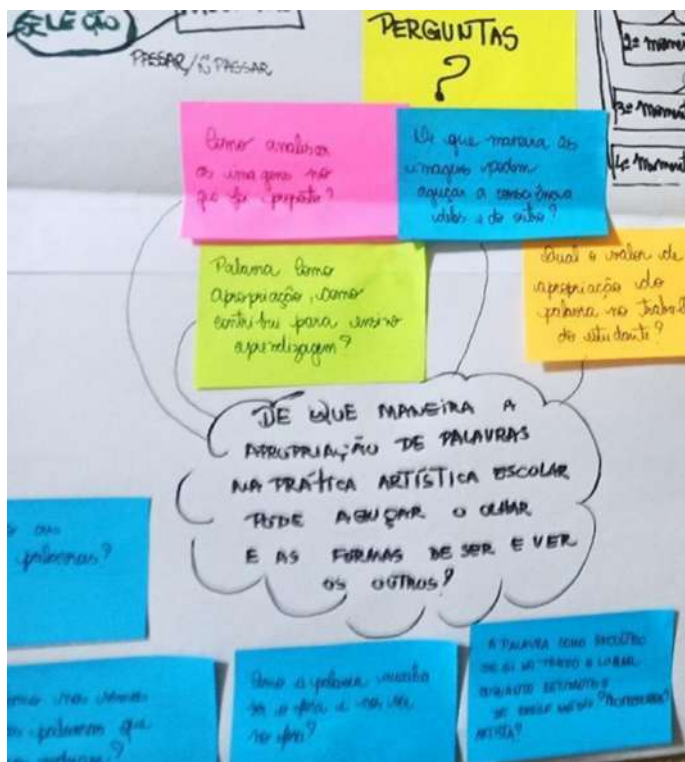 SELEÇÃO
PASSAR/Ñ PASSAR
PERGUNTAS
?
2º momen
3º momento
4º momento
Como analisar
as imagens no
que foi proposto?
De que maneira as
imagens podem
aguçar a consciência
deles e do outro?
Palavra como
apropriação, como
contribui para ensino
aprendizagem?
Qual o valor de
apropriação da
palavra no trabal
do estudante?
DE QUE MANEIRA A
APROPRIAÇÃO DE PALAVRAS
NA PRÁTICA ARTÍSTICA ESCOLAR
PODE AGUÇAR O OLHAR
E AS FORMAS DE SER E VER
OS OUTROS?
palavras?
palavras que
Como a palavra
A PALAVRA COMO
DE SI NO TEMPO E LUGAR
ENQUANTO ESTUDANTE
DE ENSINO MÉDIO? PROFESSORA?
ARTISTA?